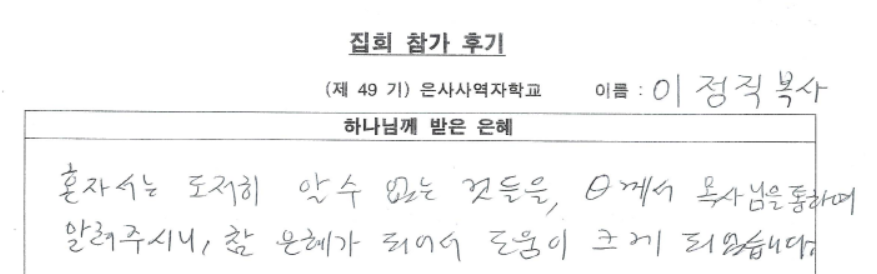 집회 참가 후기
(제 49 기) 은사사역자학교 이름 : 이정직목사
하나님께 받은 은혜
혼자서는 도저히 알수 없는 것들을, θ께서 목사님을통하여
알려주시니, 참 은혜가 되어서 도움이 크게 되었습니다.